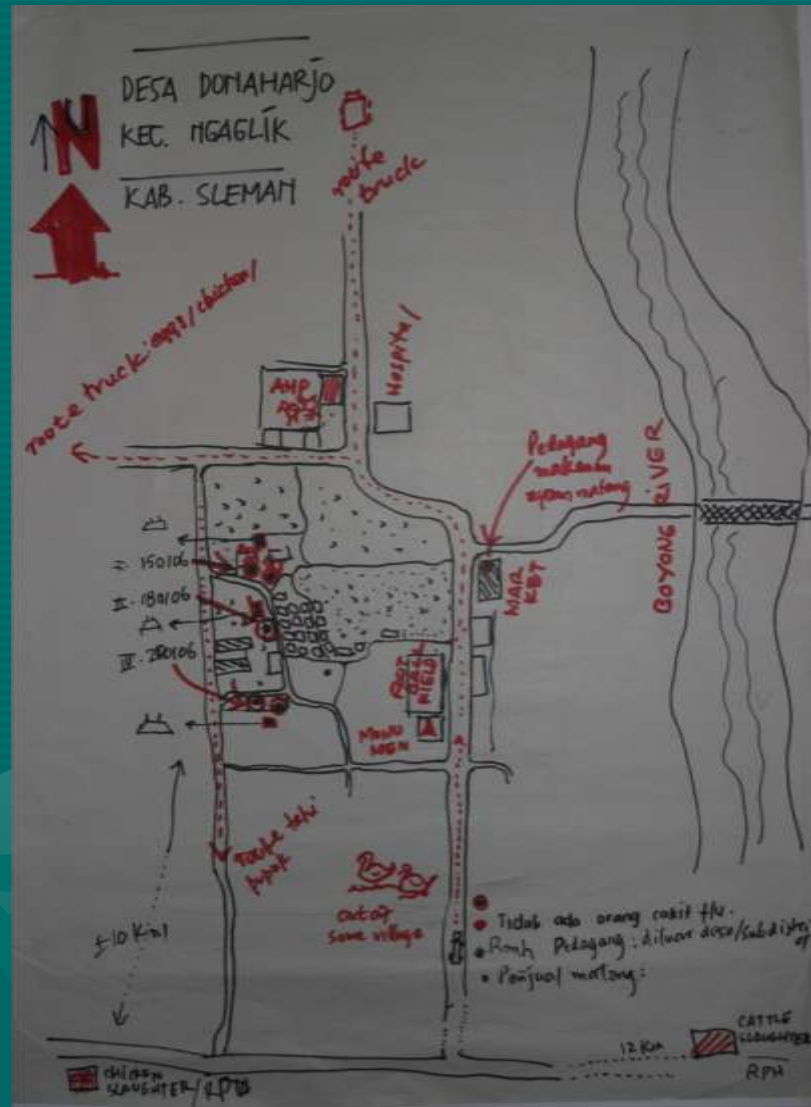 DESA DONAHARJO
KEC. NGAGLIK
KAB. SLEMAN
N
route
truck
route truck eggs/chicken/
Hospital
Pedagang
makanan
ayam matang
BOYONG RIVER
MAR
KET
I - 150106
II - 180106
III - 280106
FOOT
BALL
FIELD
MONU
MEN
± 10 Km
out of
some village
Tidak ada orang sakit flu.
Rmh Pedagang : diluar desa/subdistri
Penjual matang :
12 Km
CATTLE
SLAUGHTER
RPH
CHICKEN
SLAUGHTER/RPU